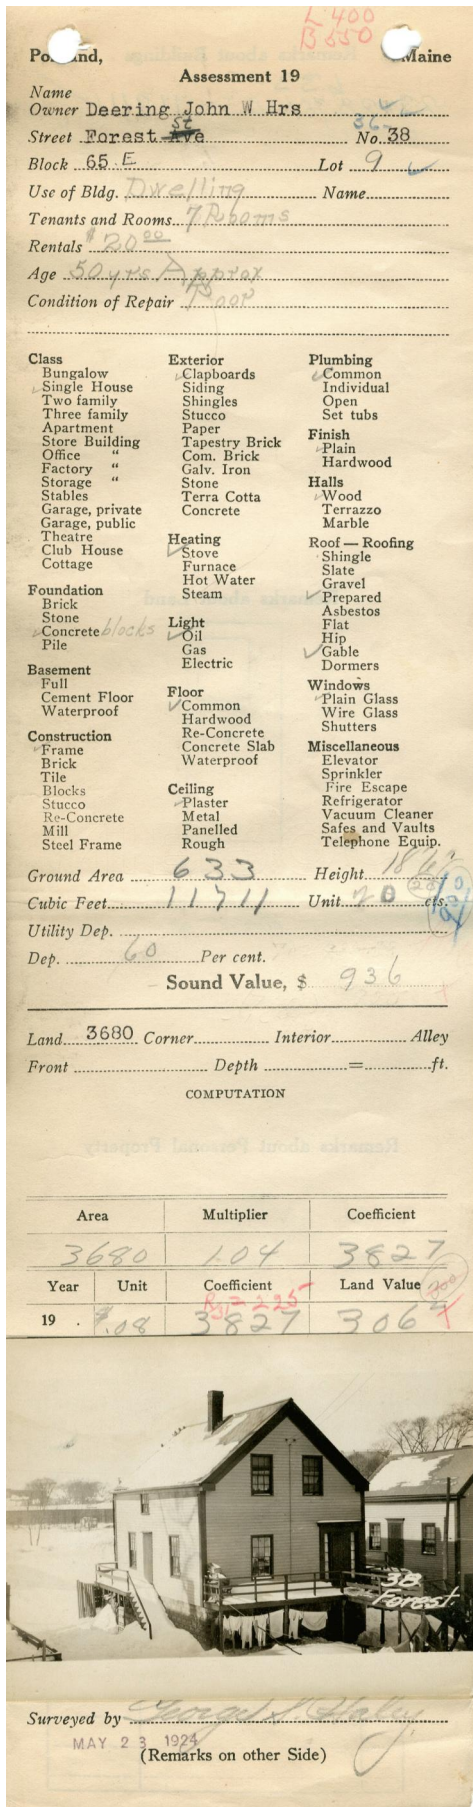 L 400
B 550
Portland, Maine
Assessment 19
Name
Owner Deering John W Hrs
Street Forest Ave St No. 38
36
Block 65 E Lot 9
Use of Bldg. Dwelling Name
Tenants and Rooms 7 Rooms
Rentals $20.00
Age 50 yrs Approx
Condition of Repair Poor
Class
Bungalow
Single House
Two family
Three family
Apartment
Store Building
Office "
Factory "
Storage "
Stables
Garage, private
Garage, public
Theatre
Club House
Cottage
Foundation
Brick
Stone
Concrete blocks
Pile
Basement
Full
Cement Floor
Waterproof
Construction
Frame
Brick
Tile
Blocks
Stucco
Re-Concrete
Mill
Steel Frame
Exterior
Clapboards
Siding
Shingles
Stucco
Paper
Tapestry Brick
Com. Brick
Galv. Iron
Stone
Terra Cotta
Concrete
Heating
Stove
Furnace
Hot Water
Steam
Light
Oil
Gas
Electric
Floor
Common
Hardwood
Re-Concrete
Concrete Slab
Waterproof
Ceiling
Plaster
Metal
Panelled
Rough
Plumbing
Common
Individual
Open
Set tubs
Finish
Plain
Hardwood
Halls
Wood
Terrazzo
Marble
Roof — Roofing
Shingle
Slate
Gravel
Prepared
Asbestos
Flat
Hip
Gable
Dormers
Windows
Plain Glass
Wire Glass
Shutters
Miscellaneous
Elevator
Sprinkler
Fire Escape
Refrigerator
Vacuum Cleaner
Safes and Vaults
Telephone Equip.
Ground Area 633 Height
Cubic Feet 11711 Unit 20 cts.
Utility Dep.
Dep. 60 Per cent.
Sound Value, $ 936
Land 3680 Corner Interior Alley
Front Depth = ft.
COMPUTATION
Area Multiplier Coefficient
3680 1.04 3827
Year Unit Coefficient Land Value
19 . $.08 3827 306
38
Forest
Surveyed by George S.
MAY 23 1924
(Remarks on other Side)